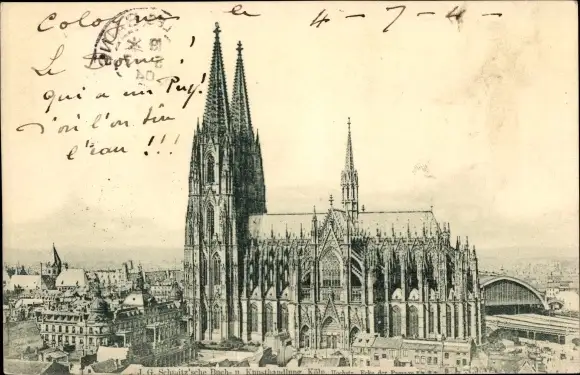 Cologne le 4-7-4-
Le Dome!
qui a un Puy!
d'où l'on tire
l'eau !!!
J. G. Schmitz'sche Buch- u. Kunsthandlung, Köln.